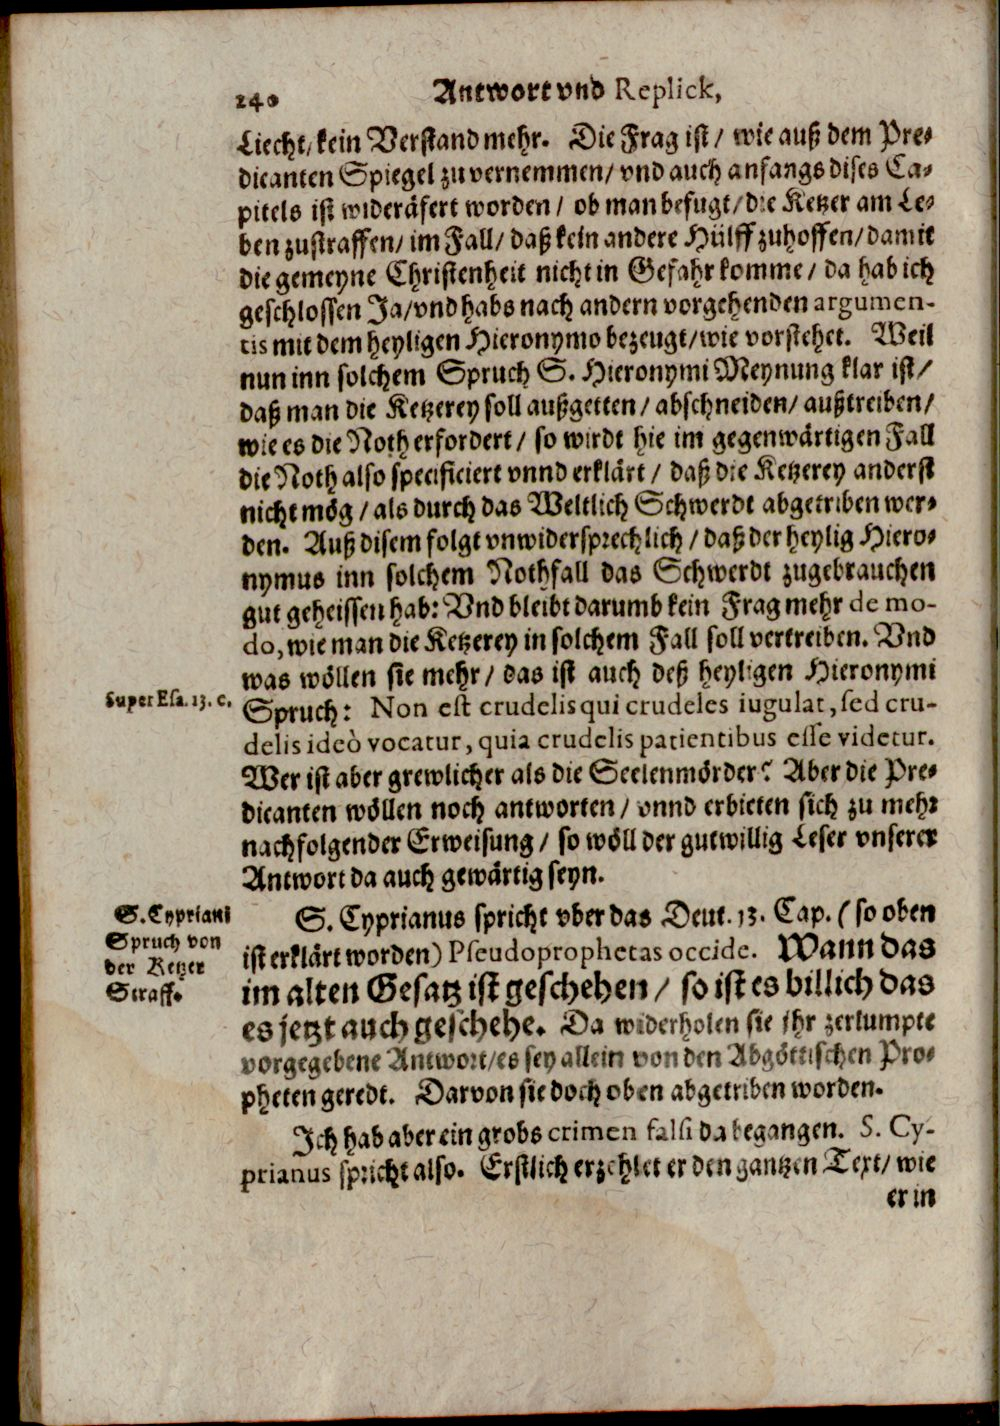 240 Antwort vnd Replick,
Liecht/ kein Verstand mehr. Die Frag ist / wie auß dem Pre-
dicanten Spiegel zu vernemmen/ vnd auch anfangs dises Ca-
pitels ist wideräfert worden / ob man befugt/ die Ketzer am Le-
ben zustraffen/ im Fall/ daß kein andere Hülff zuhoffen/ damit
die gemeyne Christenheit nicht in Gefahr komme / da hab ich
geschlossen Ja/ vnd habs nach andern vorgehenden argumen-
tis mit dem heyligen Hieronymo bezeugt/ wie vorstehet. Weil
nun inn solchem Spruch S. Hieronymi Meynung klar ist/
daß man die Ketzerey soll außgetten / abschneiden/ außtreiben/
wie es die Noth erfordert / so wirdt hie im gegenwärtigen Fall
die Noth also specificiert vnnd erklärt / daß die Ketzerey anderst
nicht mög / als durch das Weltlich Schwerdt abgetriben wer-
den. Auß disem folgt vnwidersprechlich / daß der heylig Hiero-
nymus inn solchem Nothfall das Schwerdt zugebrauchen
gut geheissen hab: Vnd bleibt darumb kein Frag mehr de mo-
do, wie man die Ketzerey in solchem Fall soll vertreiben. Vnd
was wöllen sie mehr / das ist auch deß heyligen Hieronymi
Super Esa. 13. c.
Spruch: Non est crudelis qui crudeles iugulat, sed cru-
delis ideò vocatur, quia crudelis patientibus esse videtur.
Wer ist aber grewlicher als die Seelenmörder? Aber die Pre-
dicanten wöllen noch antworten / vnnd erbieten sich zu mehr
nachfolgender Erweisung / so wöll der gutwillig Leser vnserer
Antwort da auch gewärtig seyn.
S. Cypriani
Spruch von
der Ketzer
Straff.
S. Cyprianus spricht vber das Deut. 13. Cap. (so oben
ist erklärt worden) Pseudoprophetas occide. Wann das
im alten Gesatz ist geschehen / so ist es billich das
es jetzt auch geschehe. Da widerholen sie ihr zerlumpte
vorgegebene Antwort/ es sey allein von den Abgöttischen Pro-
pheten geredt. Darvon sie doch oben abgetriben worden.
Ich hab aber ein grobs crimen falsi da begangen. S. Cy-
prianus spricht also. Erstlich erzehlet er den gantzen Text/ wie
er in